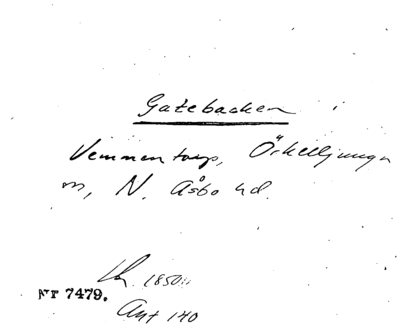 Gatebacken
Vemmentorp, Örkelljunga
sn, N. Åsbo hd.
1850
Nr 7479.
Ant 140